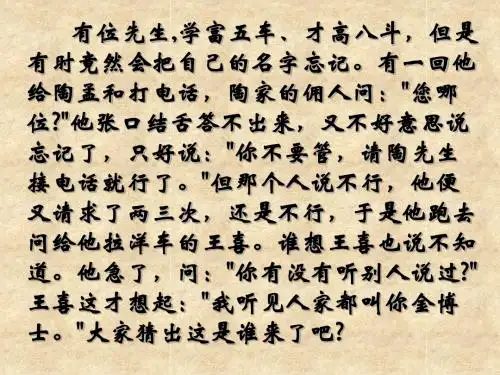 有位先生,学富五车、才高八斗，但是
有时竟然会把自己的名字忘记。有一回他
给陶孟和打电话，陶家的佣人问："您哪
位?"他张口结舌答不出来，又不好意思说
忘记了，只好说："你不要管，请陶先生
接电话就行了。"但那个人说不行，他便
又请求了两三次，还是不行，于是他跑去
问给他拉洋车的王喜。谁想王喜也说不知
道。他急了，问："你有没有听别人说过?"
王喜这才想起："我听见人家都叫你金博
士。"大家猜出这是谁来了吧?